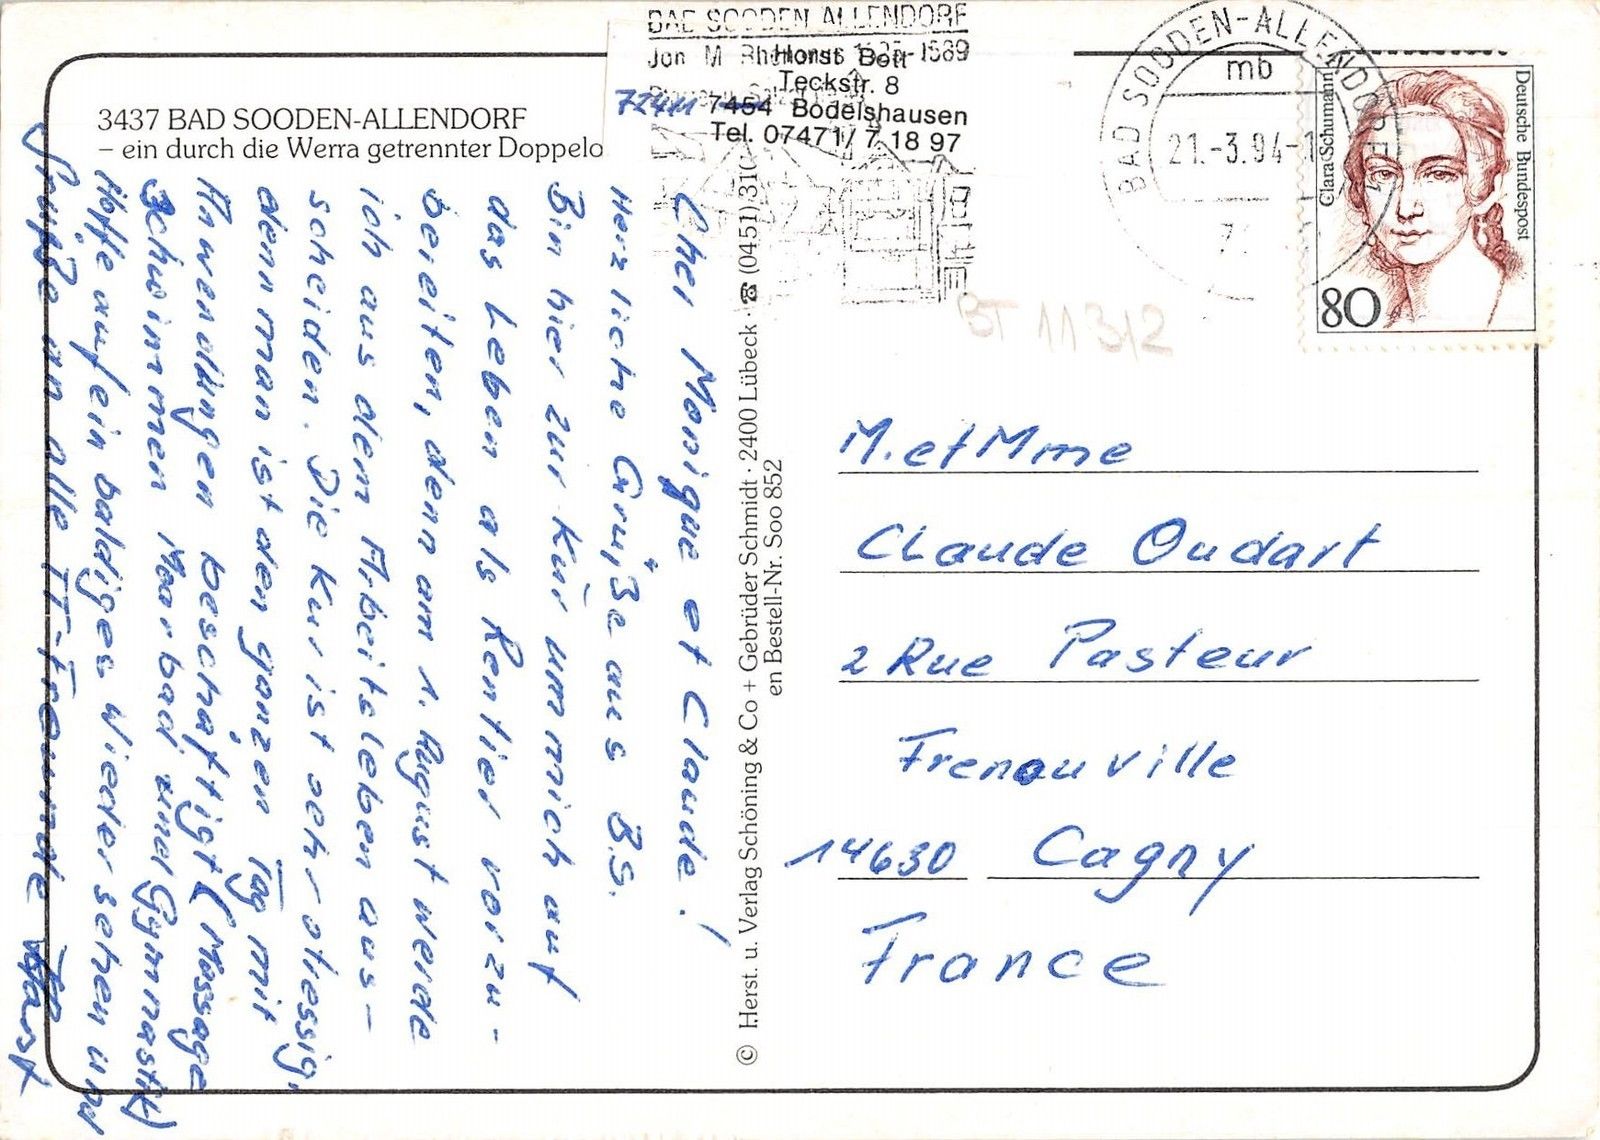 3437 BAD SOODEN-ALLENDORF
– ein durch die Werra getrennter Doppelo
BAD SOODEN ALLENDORF
Horst Bott
Teckstr. 8
72411 7454 Bodelshausen
Tel. 07471/ 7 18 97
BAD SOODEN-ALLENDORF
mb
21.-3.94-1
Clara Schumann
Deutsche Bundespost
80
BT 11 312
Cher Monique et Claude!
Herzliche Grüße aus B.S.
Bin hier zur Kur um mich auf
das Leben als Rentier vorzu-
bereiten, denn am 1. August werde
ich aus dem Arbeitsleben aus-
scheiden. Die Kur ist sehr stressig,
denn man ist den ganzen Tag mit
Anwendungen beschäftigt (Massage
Schwimmen Moorbad und Gymnastik)
Hoffe auf ein baldiges Wiedersehen und
Grüße an alle TT-Freunde
Horst
© Herst. u. Verlag Schöning & Co + Gebrüder Schmidt · 2400 Lübeck · ☎ (0451) 310
en Bestell-Nr. Soo 852
M. et Mme
Claude Oudart
2 Rue Pasteur
Frenouville
14630 Cagny
France